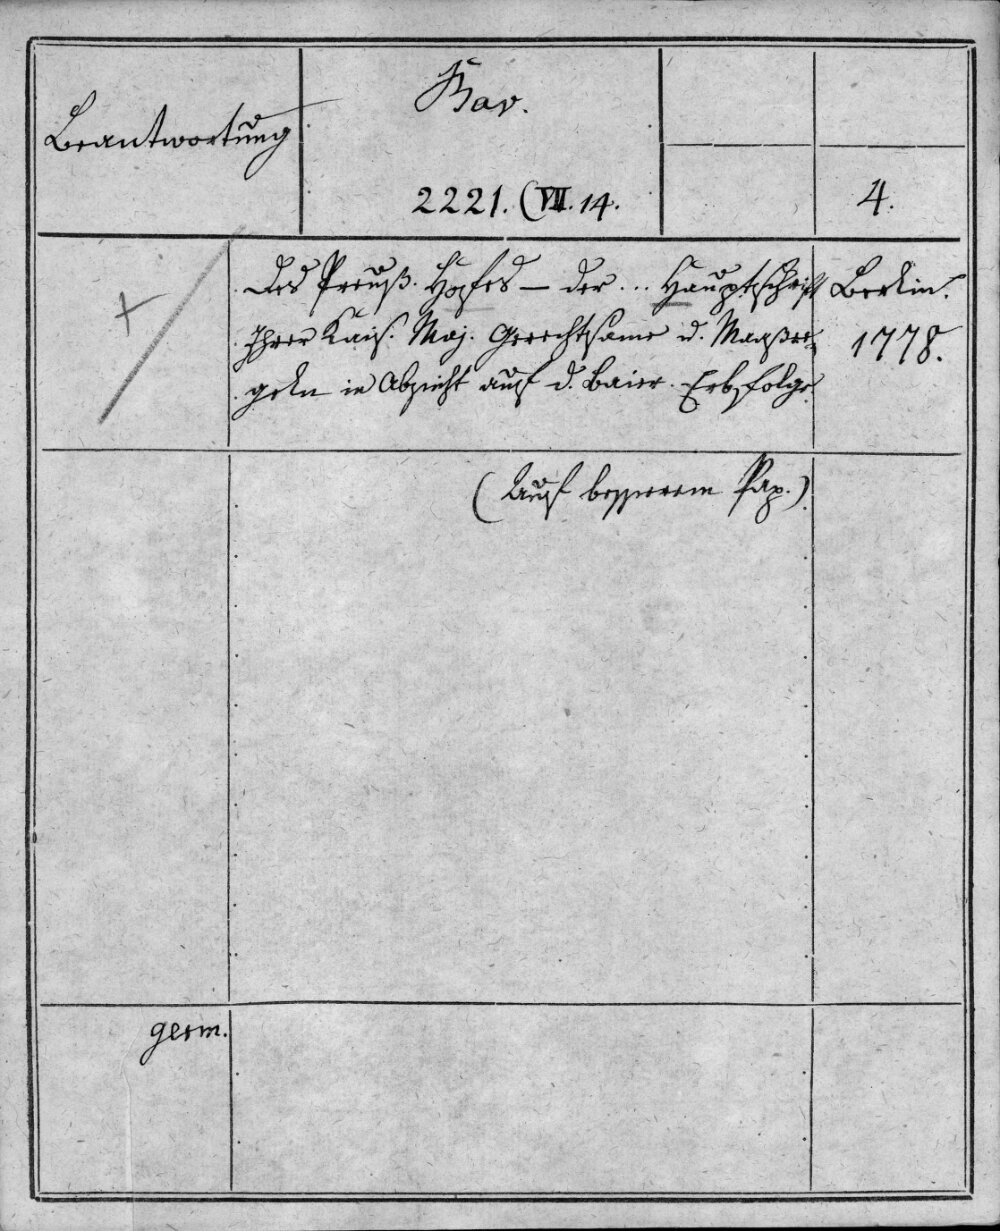 Beantwortung
Bav.
2221. (VII. 14.
4.
des Preuß. Hofes — der ... Hauptschrift
Ihrer Kais. Maj. Gerechtsame u. Maaßre-
geln in Absicht auf d. Baier. Erbfolge
Berlin.
1778.
(Auf besserem Pap.)
germ.